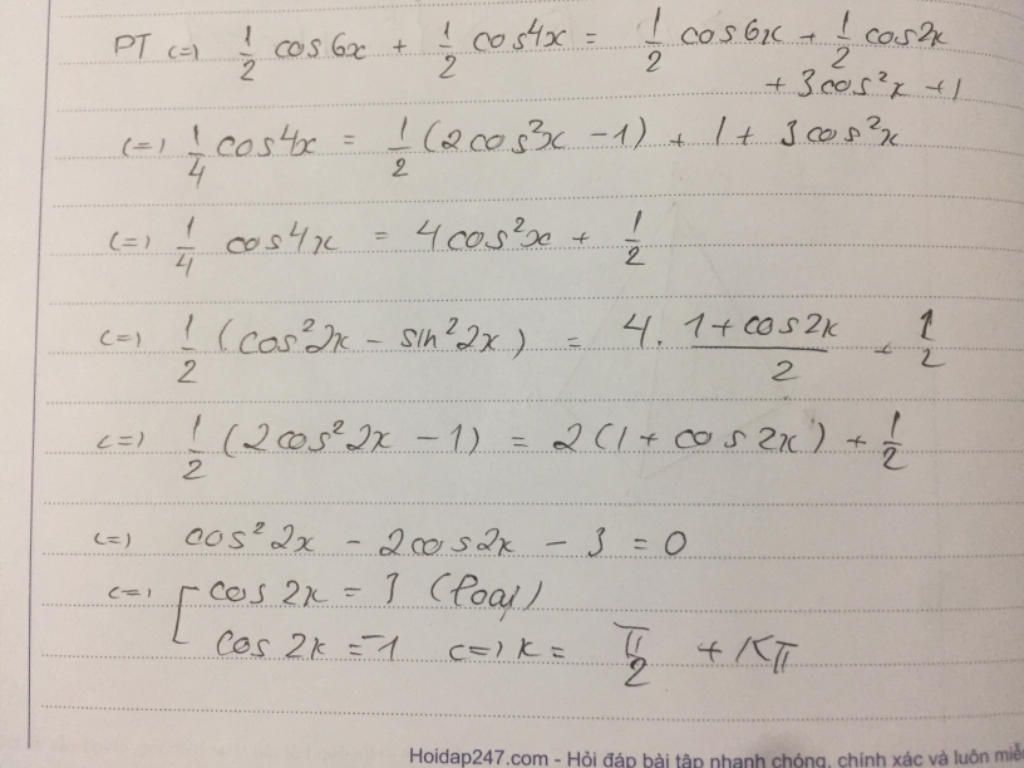 PT <=> 1/2 cos6x + 1/2 cos4x = 1/2 cos6x + 1/2 cos2x
+ 3cos²x + 1
<=> 1/4 cos4x = 1/2 (2cos²x - 1) + 1 + 3cos²x
<=> 1/4 cos4x = 4cos²x + 1/2
<=> 1/2 (cos²2x - sin²2x) = 4. (1+cos2x)/2 + 1/2
<=> 1/2 (2cos²2x - 1) = 2(1 + cos2x) + 1/2
<=> cos²2x - 2cos2x - 3 = 0
<=> [ cos2x = 3 (loại)
cos2x = -1 <=> x = π/2 + Kπ
Hoidap247.com - Hỏi đáp bài tập nhanh chóng, chính xác và luôn miễ